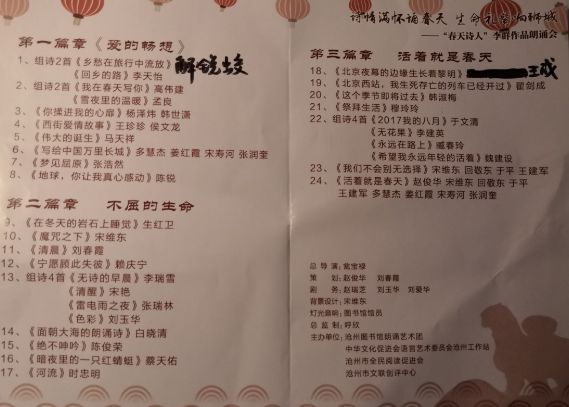 诗情满怀诵春天 生命礼赞向狮城
——“春天诗人”李群作品朗诵会
第一篇章《爱的畅想》
1、组诗2首《乡愁在旅行中流放》
《回乡的路》李天怡
2、组诗2首《我在春天写你》高伟建
《雪夜里的温暖》孟良
3、《你揉进我的心扉》杨泽炜 韩世潇
4、《西街爱情故事》王珍珍 侯文龙
5、《伟大的诞生》马天祥
6、《写给中国万里长城》多慧杰 姜红霞 宋寿河 张润奎
7、《梦见屈原》张浩然
8、《地球，你让我真心感动》陈锐
第二篇章 不屈的生命
9、《在冬天的岩石上睡觉》生红卫
10、《魔咒之下》宋维东
11、《清晨》刘春霞
12、《宁愿顾此失彼》赖庆宁
13、组诗4首《无诗的早晨》李瑞雪
《清醒》宋艳
《雷电雨之夜》张瑞林
《色彩》刘玉华
14、《面朝大海的朗诵诗》白晓清
15、《绝不呻吟》陈俊荣
16、《暗夜里的一只红蜻蜓》蔡天佑
17、《河流》时忠明
第三篇章 活着就是春天
18、《北京夜幕的边缘生长着黎明》 王成
19、《北京西站，我生死存亡的列车已经开过》翟剑成
20、《这个季节即将过去》韩淑梅
21、《祭拜生活》穆玲玲
22、组诗4首《2017我的八月》于文清
《无花果》李建英
《永远在路上》臧春玲
《希望我永远年轻的活着》魏建设
23、《我们不会别无选择》宋维东 回敬东 于平 王建军
24、《活着就是春天》赵俊华 宋维东 回敬东 于平
王建军 多慧杰 姜红霞 宋寿河 张润奎
总 导 演：窦宝禄
策 划：赵俊华 刘春霞
剧 务：赵瑞芝 刘玉华 刘爱华
背景设计：宋维东
灯光音响：图书馆馆员
总 监 制：呼欣
主办单位：沧州图书馆朗诵艺术团
中华文化促进会语言艺术委员会沧州工作站
沧州市全民阅读促进会
沧州市文联创评中心